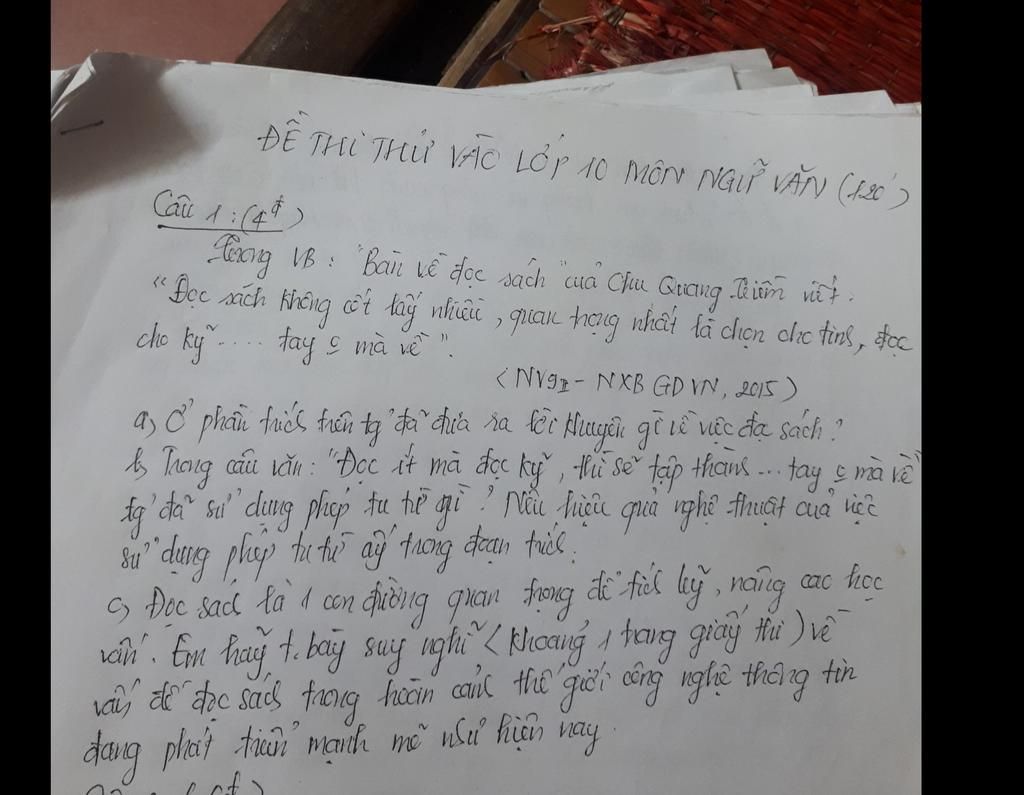 ĐỀ THI THỬ VÀO LỚP 10 MÔN NGỮ VĂN (120')
Câu 1: (4đ)
Trong VB: "Bàn về đọc sách" của Chu Quang Tiềm viết:
"Đọc sách không cốt lấy nhiều, quan trọng nhất là chọn cho tinh, đọc
cho kỹ .... tay c mà về".
(NV9II - NXB GDVN, 2015)
a, Ở phần trích trên tg đã đưa ra lời khuyên gì về việc đọc sách?
b, Trong câu văn: "Đọc ít mà đọc kỹ, thì sẽ tập thành... tay c mà về"
tg đã sử dụng phép tu từ gì? Nêu hiệu quả nghệ thuật của việc
sử dụng phép tu từ ấy trong đoạn trích.
c, Đọc sách là 1 con đường quan trọng để tích luỹ, nâng cao học
vấn. Em hãy t.bày suy nghĩ (khoảng 1 trang giấy thi) về
vấn đề đọc sách trong hoàn cảnh thế giới công nghệ thông tin
đang phát triển mạnh mẽ như hiện nay.